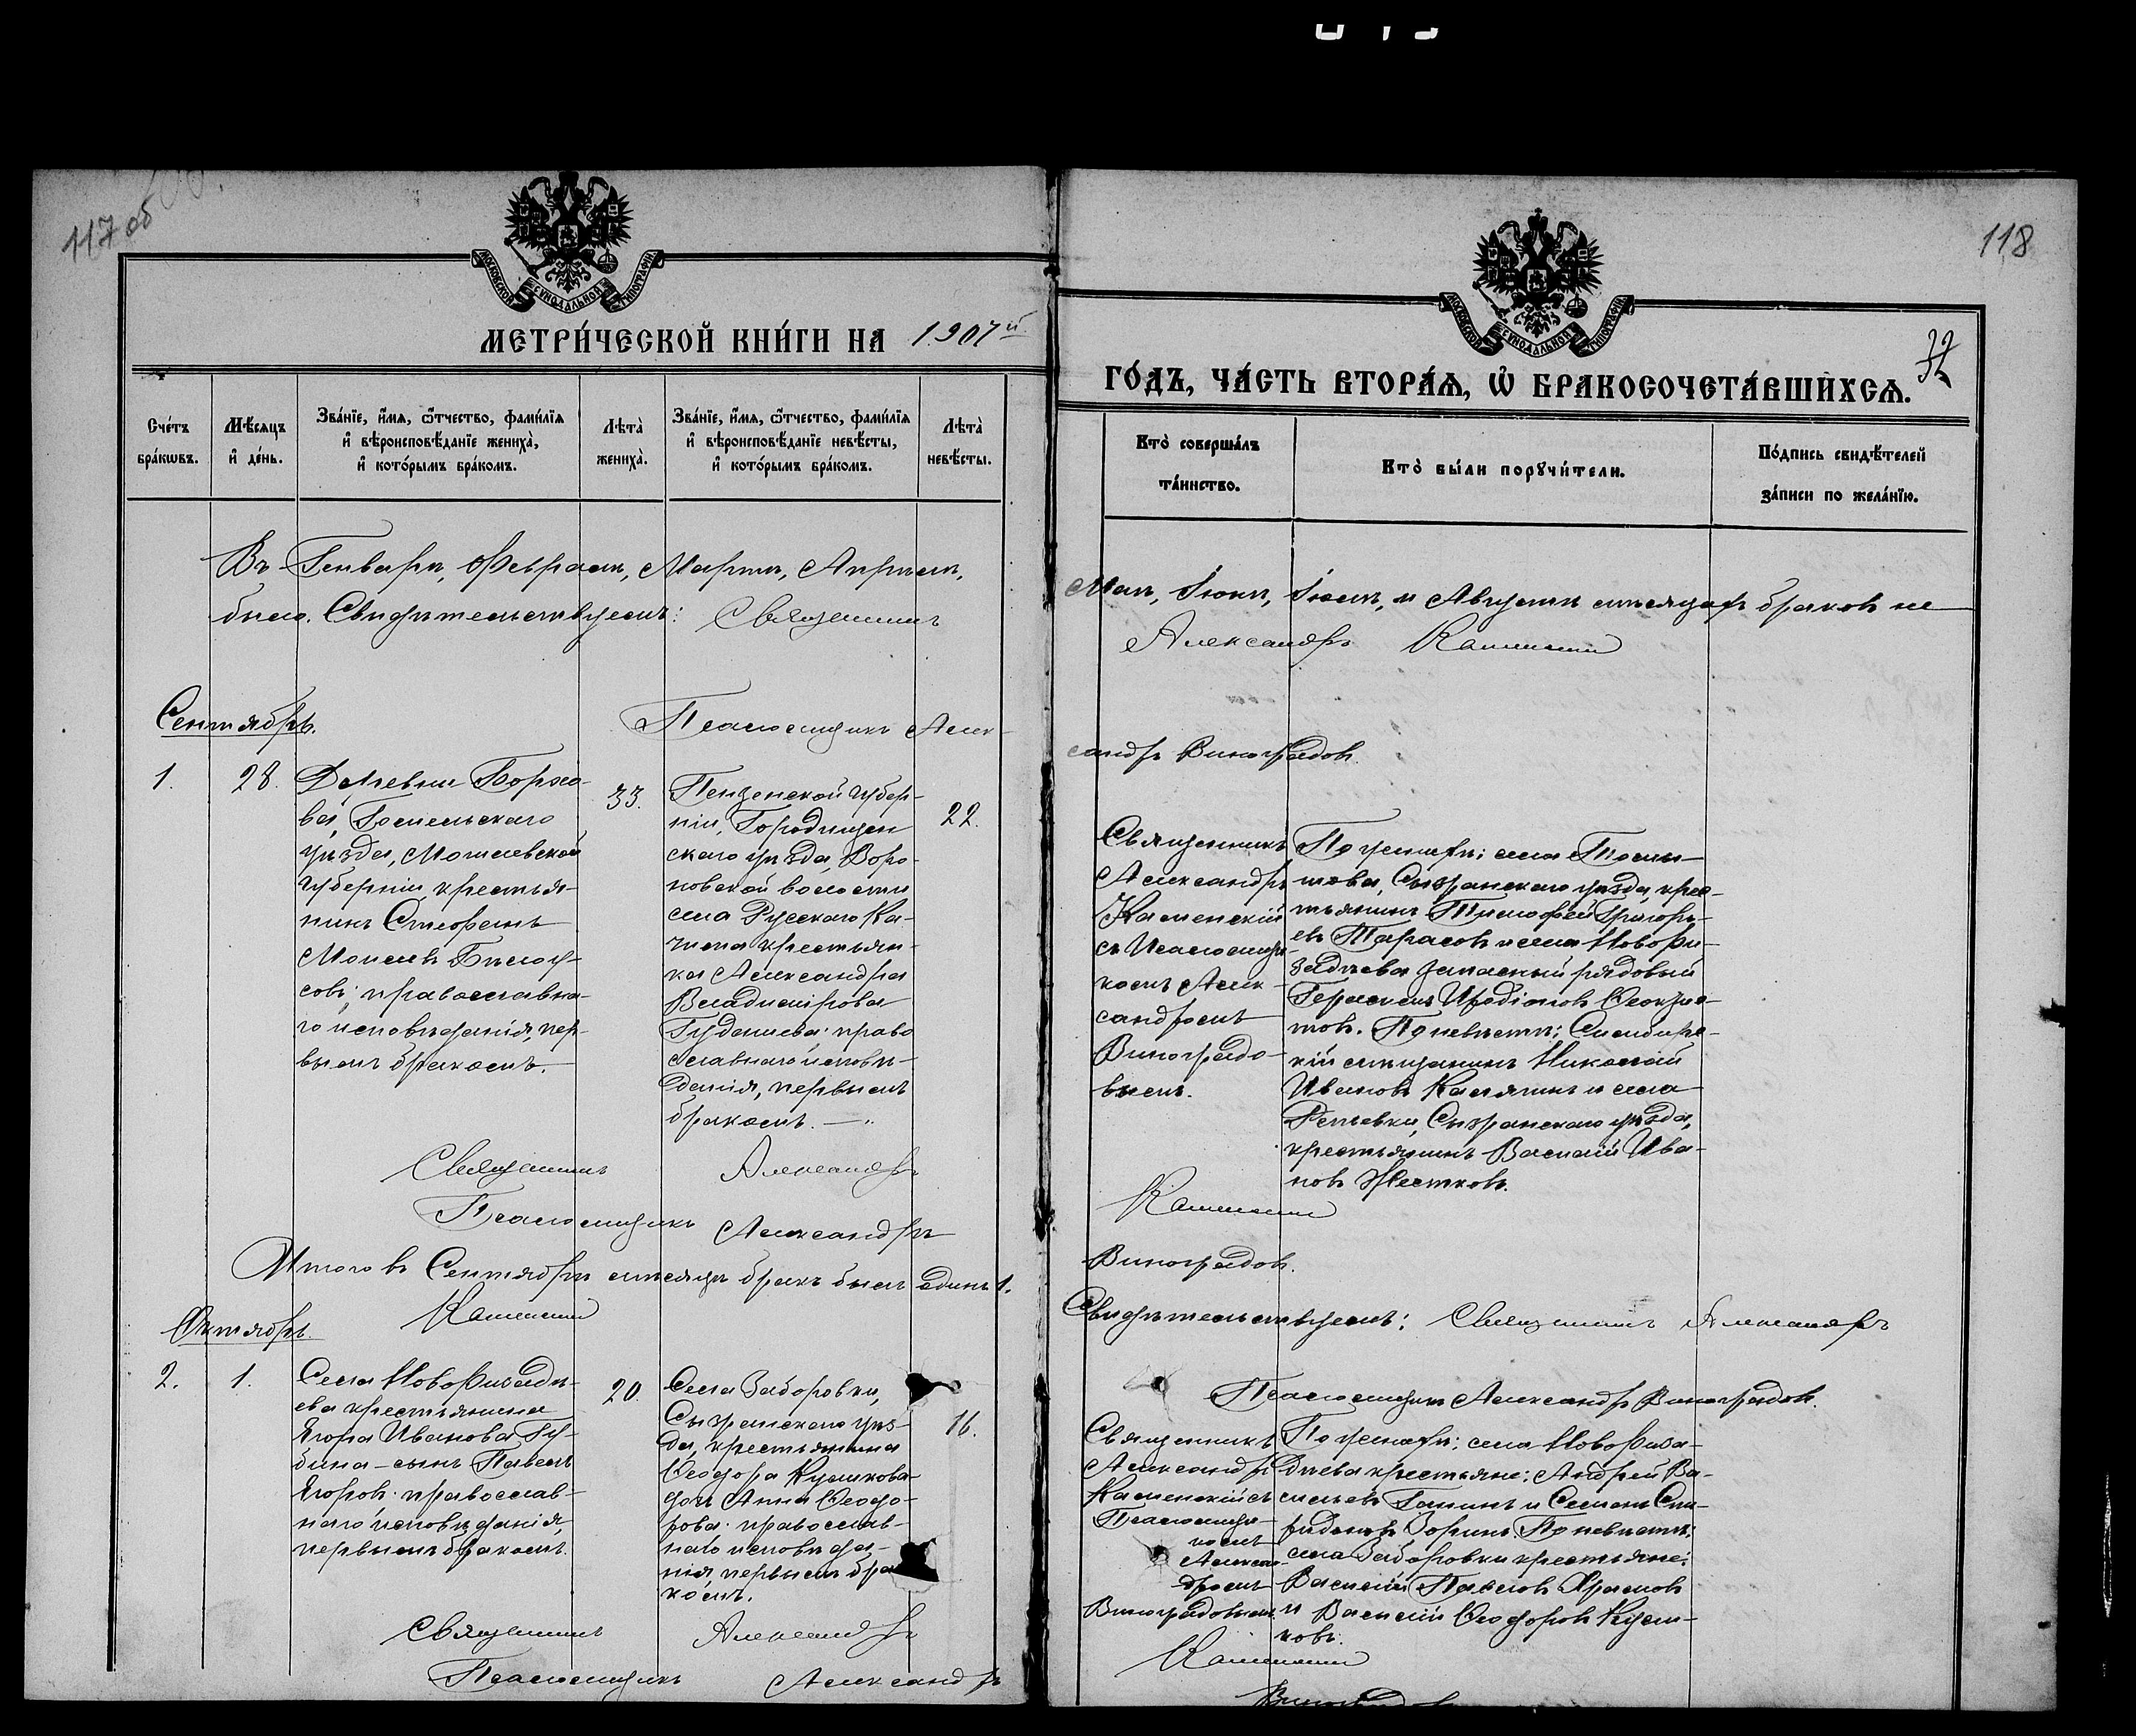 117 об
118
МОСКОВСКОЙ СѴНОДАЛЬНОЙ ТИПОГРАФІИ
МОСКОВСКОЙ СѴНОДАЛЬНОЙ ТИПОГРАФІИ
МЕТРИ́ЧЕСКОЙ КНИ́ГИ НА 1907й
ГО́ДЪ, ЧА́СТЬ ВТОРА́Ѧ, Ѽ БРАКОСОЧЕТА́ВШИХСѦ.
Сче́тъ бра́кωвъ.
Мѣ́сяцъ и҆ де́нь.
Зва́нїе, и҆́мѧ, ѻ҆́тчество, фами́лїѧ
и҆ вѣроисповѣ́данїе жениха̀,
и҆ кото́рымъ бра́комъ.
Лѣта̀ жениха̀.
Зва́нїе, и҆́мѧ, ѻ҆́тчество, фами́лїѧ
и҆ вѣроисповѣ́данїе невѣ́сты,
и҆ кото́рымъ бра́комъ.
Лѣта̀ невѣ́сты.
Кто̀ соверша́лъ
та́инство.
Кто̀ бы́ли порꙋчи́тели.
По́дпись свидѣ́телей
за́писи по жела́нїю.
Въ Генварѣ, Февралѣ, Мартѣ, Апрѣлѣ,
Маѣ, Іюнѣ, Іюлѣ, и Августѣ мѣсяцахъ браковъ не
было. Свидѣтельствуемъ: Священникъ
Александръ Каменскій
Сентябрь.
Псаломщикъ Алек-
сандръ Виноградовъ.
1.
28.
Деревни
вой, Гомельскаго
уѣзда, Могилевской
губерніи, крестья-
нинъ Стефанъ
Моисеевъ Бѣлоу-
совъ; православна-
го исповѣданія, пер-
вымъ бракомъ.
33.
Пензенской губер-
ніи, Городищен
скаго уѣзда, Воро-
новской волости
села Русскаго Ка-
чима крестьян-
ка Александра
Владимірова
православнаго исповѣ-
данія, первымъ
бракомъ.
22.
Священникъ
Александръ
Каменскій
съ Псаломщи-
комъ Алек-
сандромъ
Виноградо-
вымъ.
По женихѣ: села
Сызранскаго уѣзда, крес-
тьянинъ Тимофей Григорь-
евъ Тарасовъ и села Новори-
задѣева запасный рядовый
Герасимъ Иродіоновъ Ѳеокти-
товъ. По невѣстѣ: Симбирс-
кій мѣщанинъ Николай
Ивановъ Калягинъ и села
Репьевки, Сызранскаго уѣзда,
крестьянинъ Василій Ива-
новъ Жестковъ.
Священникъ Александръ
Каменскій
Псаломщикъ Александръ
Виноградовъ.
Итого въ Сентябрѣ мѣсяцѣ бракъ былъ одинъ 1.
Свидѣтельствуемъ: Священникъ Александръ
Каменскій
Псаломщикъ Александръ Виноградовъ.
Октябрь.
2.
1.
Села Новоризадѣ-
ева крестьянина
Егора Иванова Гу-
бина – сынъ Павелъ
Егоровъ. православ-
наго исповѣданія,
первымъ бракомъ.
20.
Села Заборовки,
Сызранскаго уѣз-
да, крестьянина
Ѳеодора Куликова
дочь Анна Ѳеодо-
рова. православ-
наго исповѣда-
нія, первымъ бра
комъ.
16.
Священникъ
Александръ
Каменскій съ
Псаломщи-
комъ
Алексан-
дромъ
Виноградовымъ
По женихѣ: села Новориза-
дѣева крестьяне: Андрей Ва-
сильевъ Ганинъ и Семенъ Спи-
ридоновъ Зоринъ. По невѣстѣ:
села Заборовки крестьяне:
Василій Павловъ Храмовъ
и Василій Ѳеодоровъ Кули-
ковъ.
Священникъ Александръ
Каменскій
Псаломщикъ Александръ
Виноградовъ